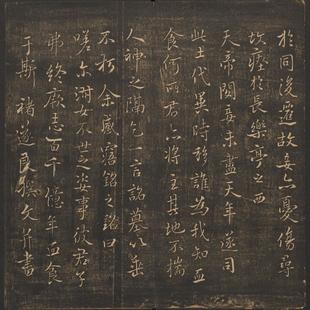 於同後遷故妾亦憂傷尋
故瘞於長樂亭之西
天帝閔妾未盡天年遂司
此土代異時移誰為我知血
食何所君亦將主其地不揣
人神之隔乞一言銘墓以垂
不朽余感寤銘之銘曰
嗟爾淑女不世之姿事彼君子
弗終厥志百千億年血食
于斯 褚遂良撰文并書